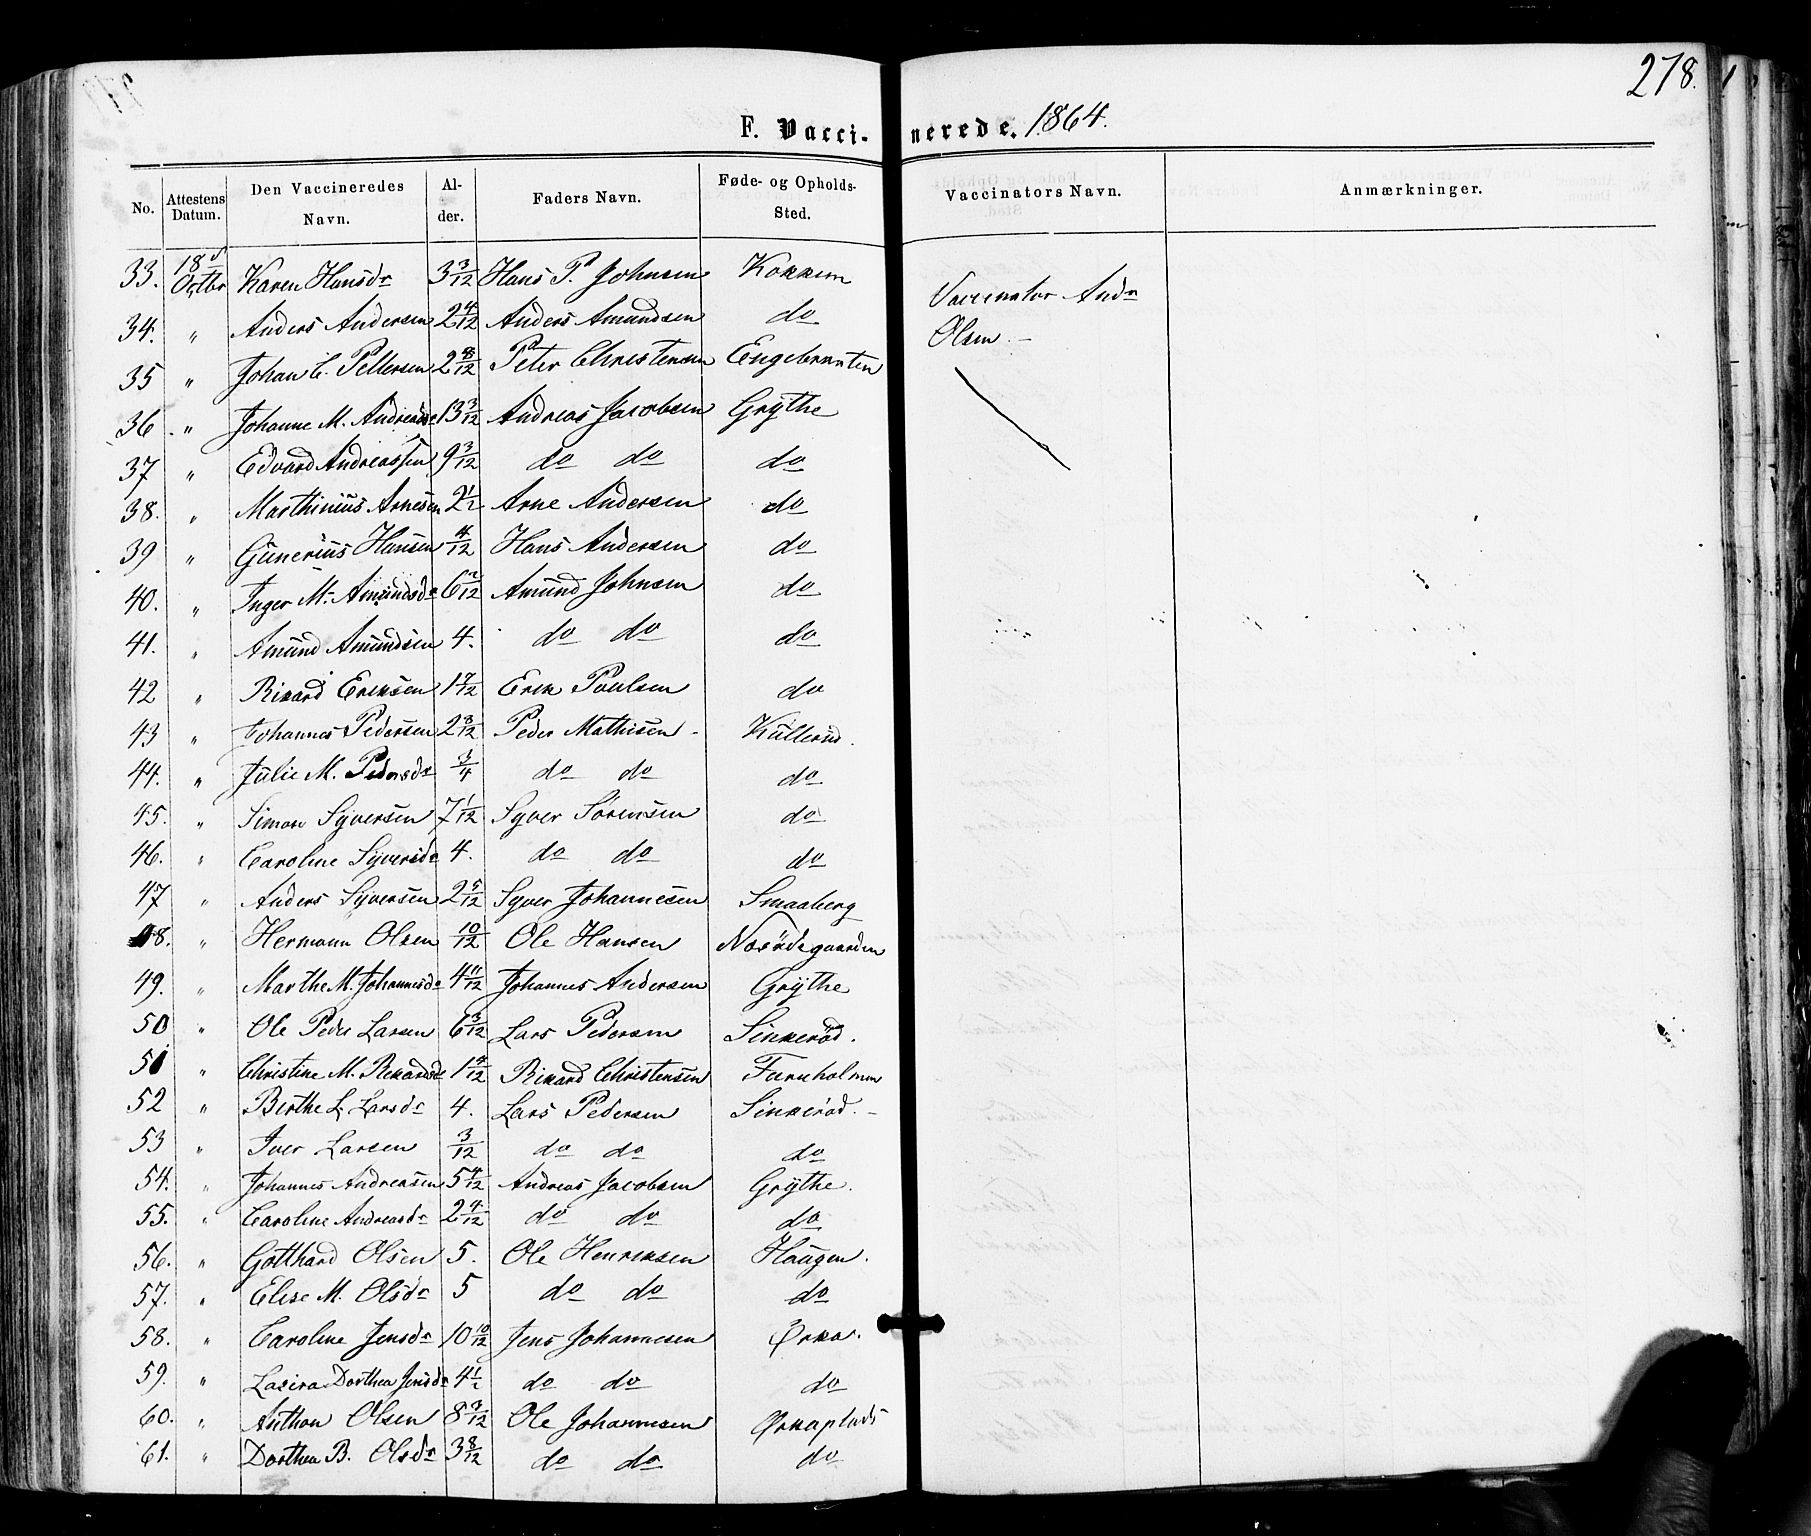 278.
F. Vacci- nerede. 1864.
No. Attestens Datum. Den Vaccineredes Navn. Al- der. Faders Navn. Føde- og Opholds- Sted. Vaccinators Navn. Anmærkninger.
33. 18 d Octbr Karen Hansdr 3 3/12 Hans P. Johnsen Kokkim Vaccinator Andr
34. " Anders Andersen 2 4/12 Anders Amundsen do Olsen. -
35 " Johan C. Pettersen 2 8/12 Peter Christensen Engebraaten
36 " Johanne M. Andreasdr 13 3/12 Andreas Jacobsen Grythe
37 " Edvard Andreassen 9 3/12 do do do
38. " Marthinius Arnesen 2 1/2 Arne Andersen do
39 " Gunerius Hansen 4/12 Hans Andersen do
40. " Inger M. Amundsdr 6 2/12 Amund Johnsen do
41. " Amund Amundsen 4. do do do
42 " Rikard Eriksen 1 7/12 Erik Poulsen do
43 " Johannes Pedersen 2 8/12 Peder Mathisen - Kullerud.
44. " Julie M. Pedersdr 3/4 do do do
45. " Simon Syversen 7 1/12 Syver Sörensen do
46. " Caroline Syversdr 4. do do do
47 " Anders Syversen 2 5/12 Syver Johannesen Smaaberg
48. " Hermann Olsen 10/12 Ole Hansen Næsödegaarden
49. " Marthe M. Johannesdr 4 11/12 Johannes Andersen Grythe
50 " Ole Peder Larsen 6 3/12 Lars Pedersen Sinkeröd.
51 " Christine M. Rikardsdr 1 9/12 Rikard Christensen Furuholmen
52 " Berthe L. Larsdr 4. Lars Pedersen Sinkeröd. -
53 " Iver Larsen 3/12 do do do
54. " Johannes Andreasen 5 4/12 Andreas Jacobsen Grythe.
55. " Caroline Andreasdr 2 4/12 do do do
56. " Gotthard Olsen 5. Ole Henriksen Haugen.
57. " Elise M. Olsdr 5 do do do
58. " Caroline Jensdr 10 10/12 Jens Johannesen Ørka.
59. " Dorthea Jensdr 4 1/2 do do do
60. " Anthon Olsen 8 3/12 Ole Johannesen Ørkaplads
61. " Dorthea B. Olsdr 3 8/12 do do do